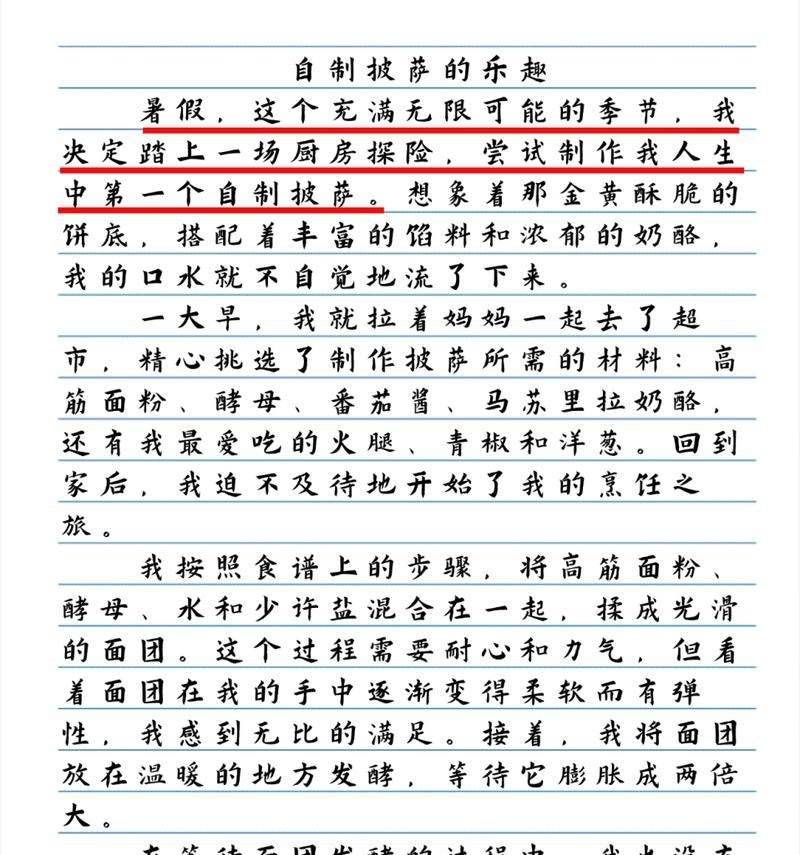 自制披萨的乐趣
暑假，这个充满无限可能的季节，我
决定踏上一场厨房探险，尝试制作我人生
中第一个自制披萨。想象着那金黄酥脆的
饼底，搭配着丰富的馅料和浓郁的奶酪，
我的口水就不自觉地流了下来。
一大早，我就拉着妈妈一起去了超
市，精心挑选了制作披萨所需的材料：高
筋面粉、酵母、番茄酱、马苏里拉奶酪，
还有我最爱吃的火腿、青椒和洋葱。回到
家后，我迫不及待地开始了我的烹饪之
旅。
我按照食谱上的步骤，将高筋面粉、
酵母、水和少许盐混合在一起，揉成光滑
的面团。这个过程需要耐心和力气，但看
着面团在我的手中逐渐变得柔软而有弹
性，我感到无比的满足。接着，我将面团
放在温暖的地方发酵，等待它膨胀成两倍
大。